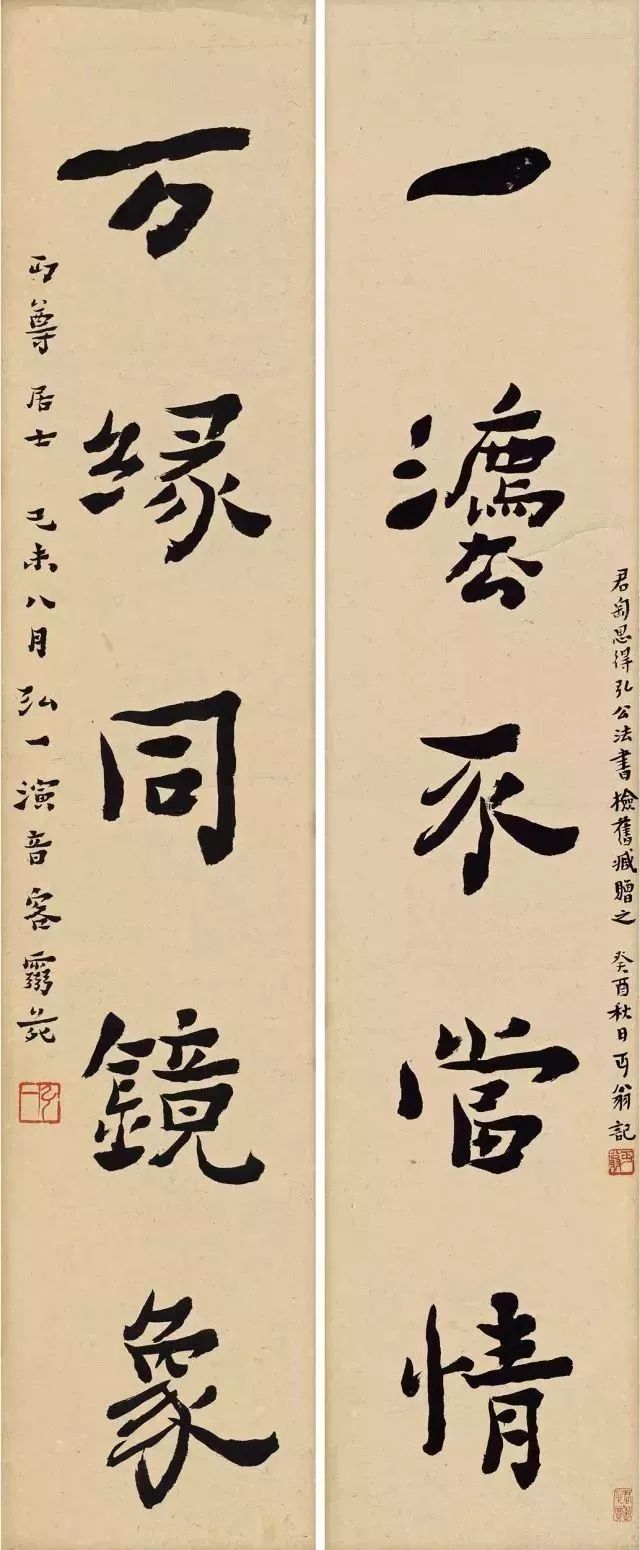 一灋不當情
君匋思得弘公法書檢舊臧贈之 癸酉秋日丏翁記
万緣同鏡象
丏尊居士 己未八月弘一演音客苑
弘一